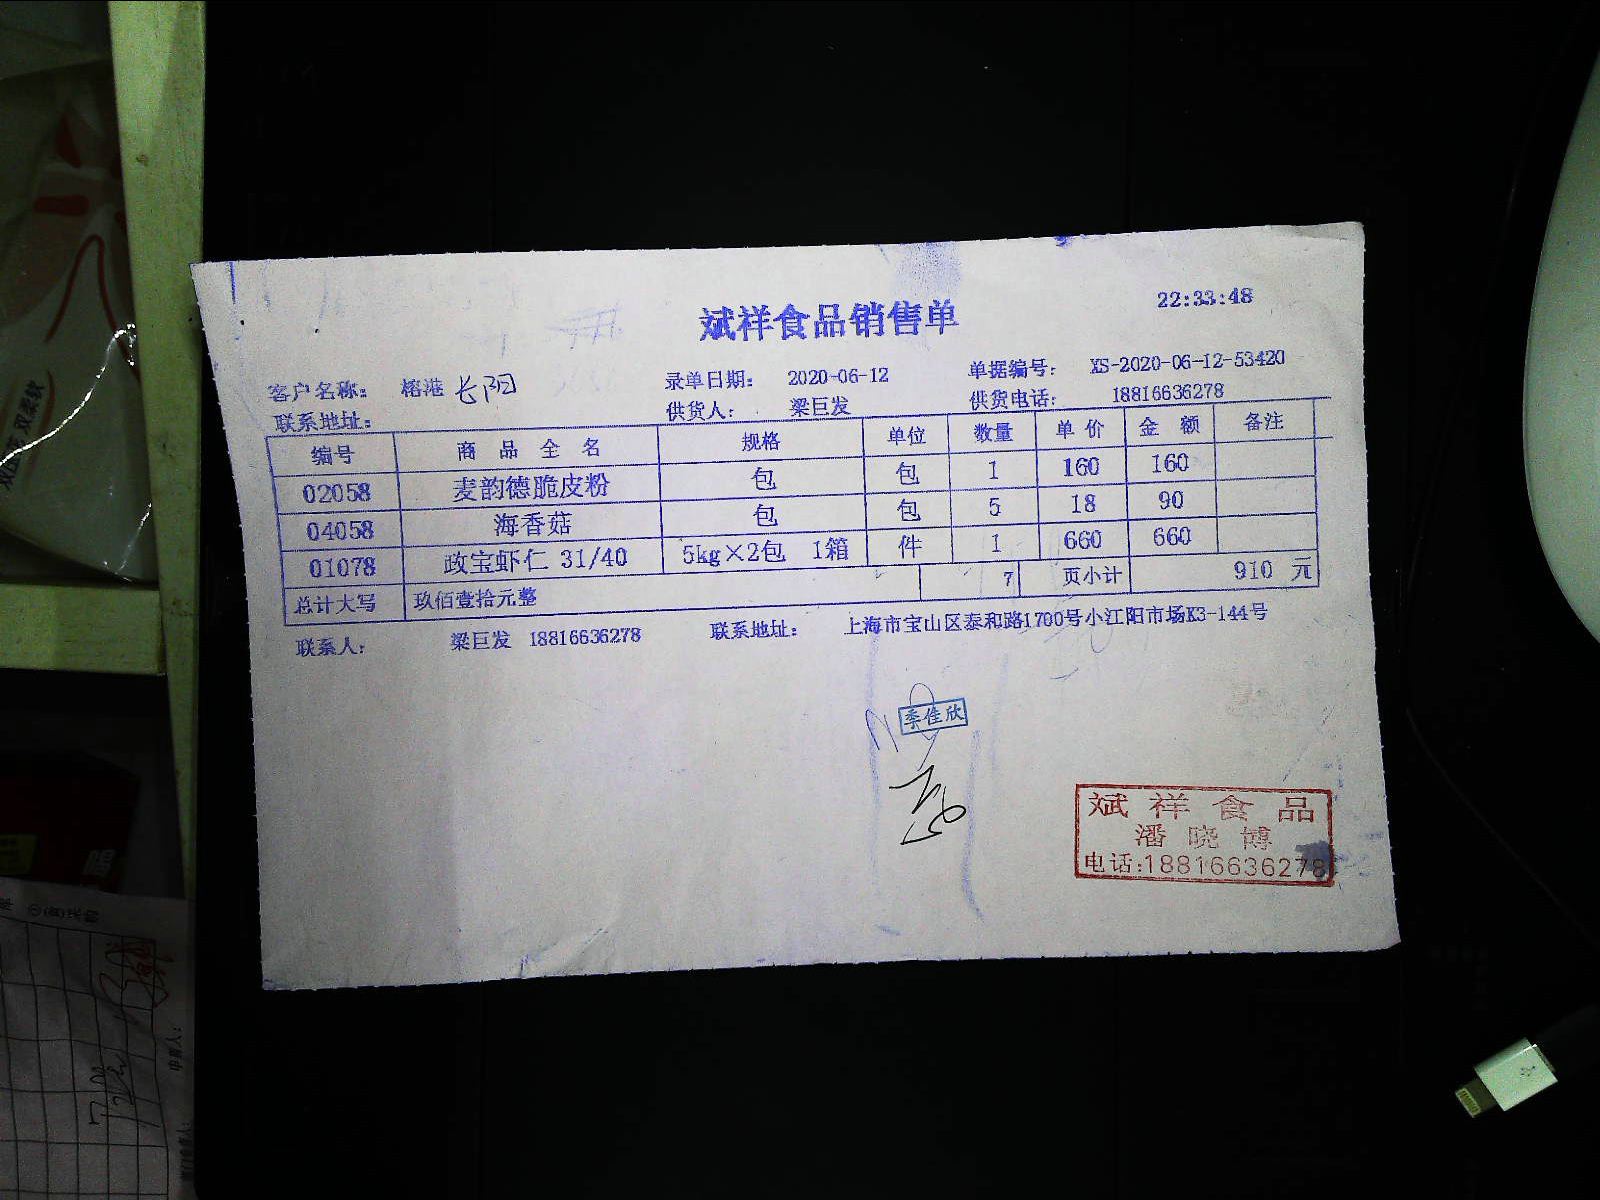 斌祥食品销售单
22:33:48
客户名称： 榕港 长阳 录单日期： 2020-06-12 单据编号： XS-2020-06-12-53420
联系地址： 供货人： 梁巨发 供货电话： 18816636278
编号 商品全名 规格 单位 数量 单价 金额 备注
02058 麦韵德脆皮粉 包 包 1 160 160
04058 海香菇 包 包 5 18 90
01078 政宝虾仁 31/40 5kg×2包 1箱 件 1 660 660
总计大写 玖佰壹拾元整 7 页小计 910 元
联系人： 梁巨发 18816636278 联系地址： 上海市宝山区泰和路1700号小江阳市场K3-144号
季佳欣
斌祥食品
潘晓博
电话:18816636278
双柔软
申请人：